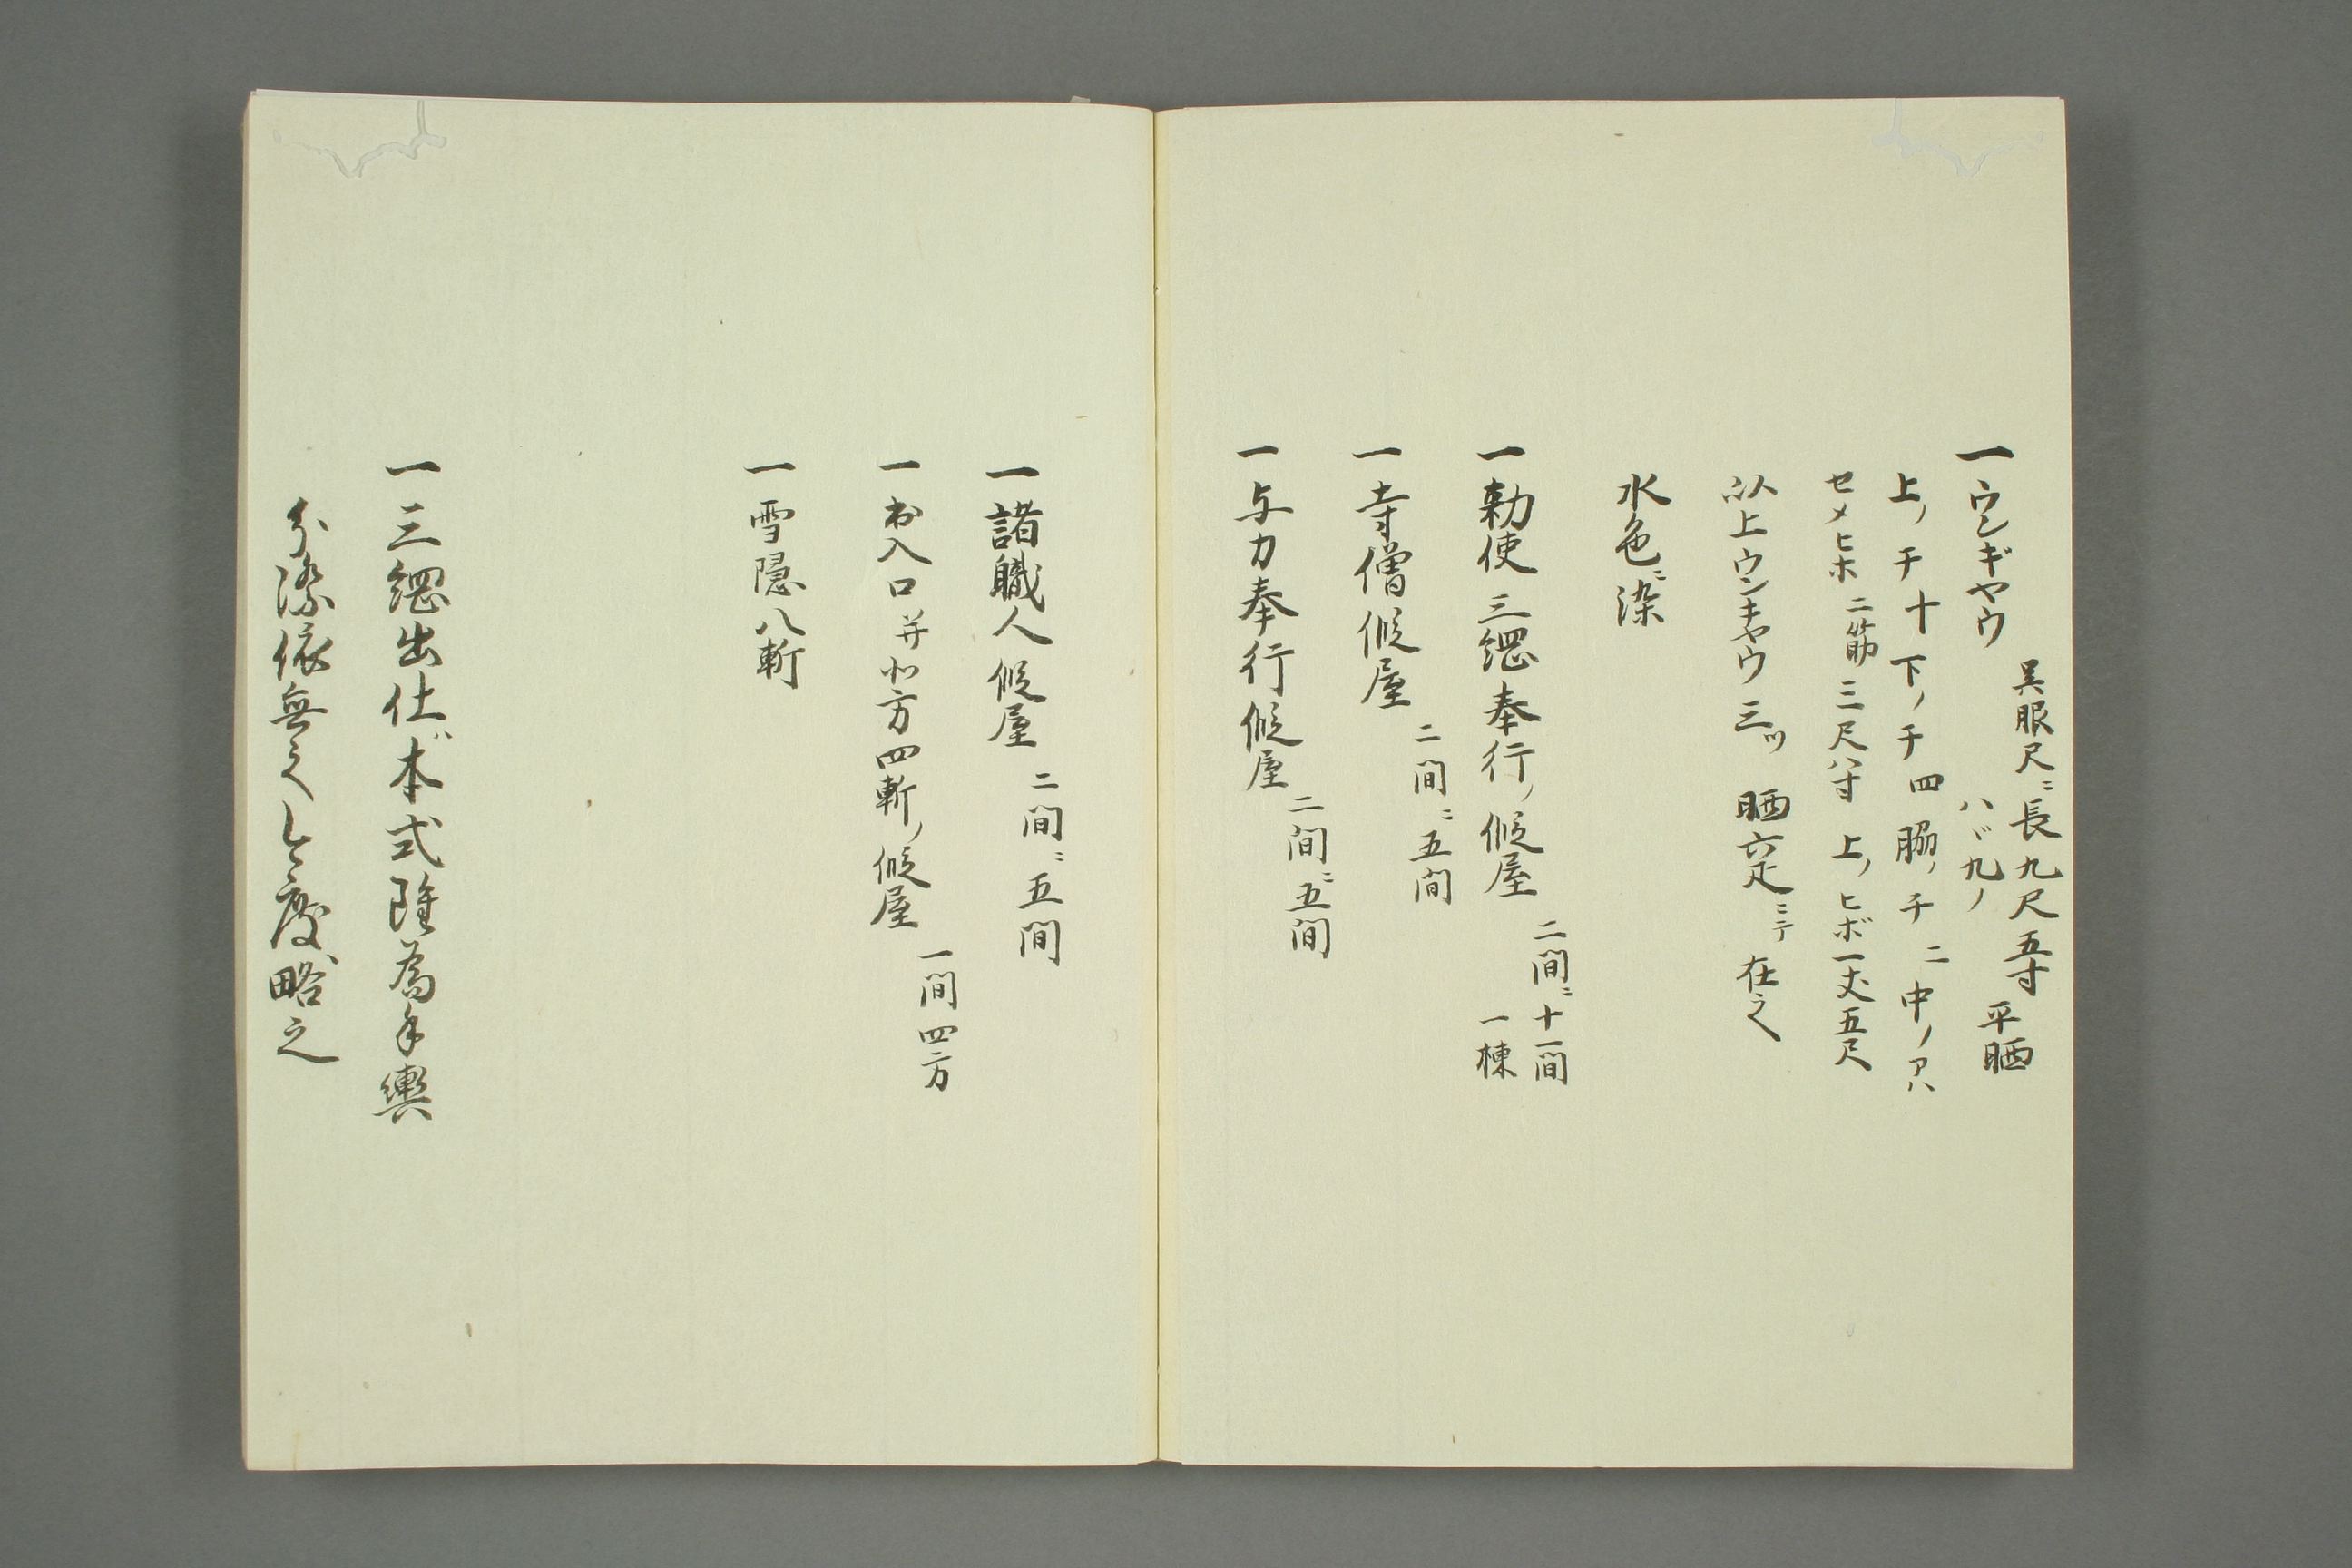 一ウンギヤウ　呉服尺ニ長九尺五寸　平晒
ハバ九ノ
上ノチ十下ノチ四脇ノチ二中ノアハ
セメヒホ二筋三尺八寸上ノヒボ一丈五尺
以上ウンキヤウ三ツ晒六疋ニテ在之
水色ニ染
一勅使三綱奉行ノ假屋　二間ニ十一間
一棟
一寺僧假屋　二間ニ五間
一与力奉行假屋　二間ニ五間
一諸職人假屋　二間ニ五間
一出入口并北方四ヶ所ノ假屋　一間四方
一雪隠八ヶ所
一三綱出仕ハ本式雖為手輿
分際依無之今度略之